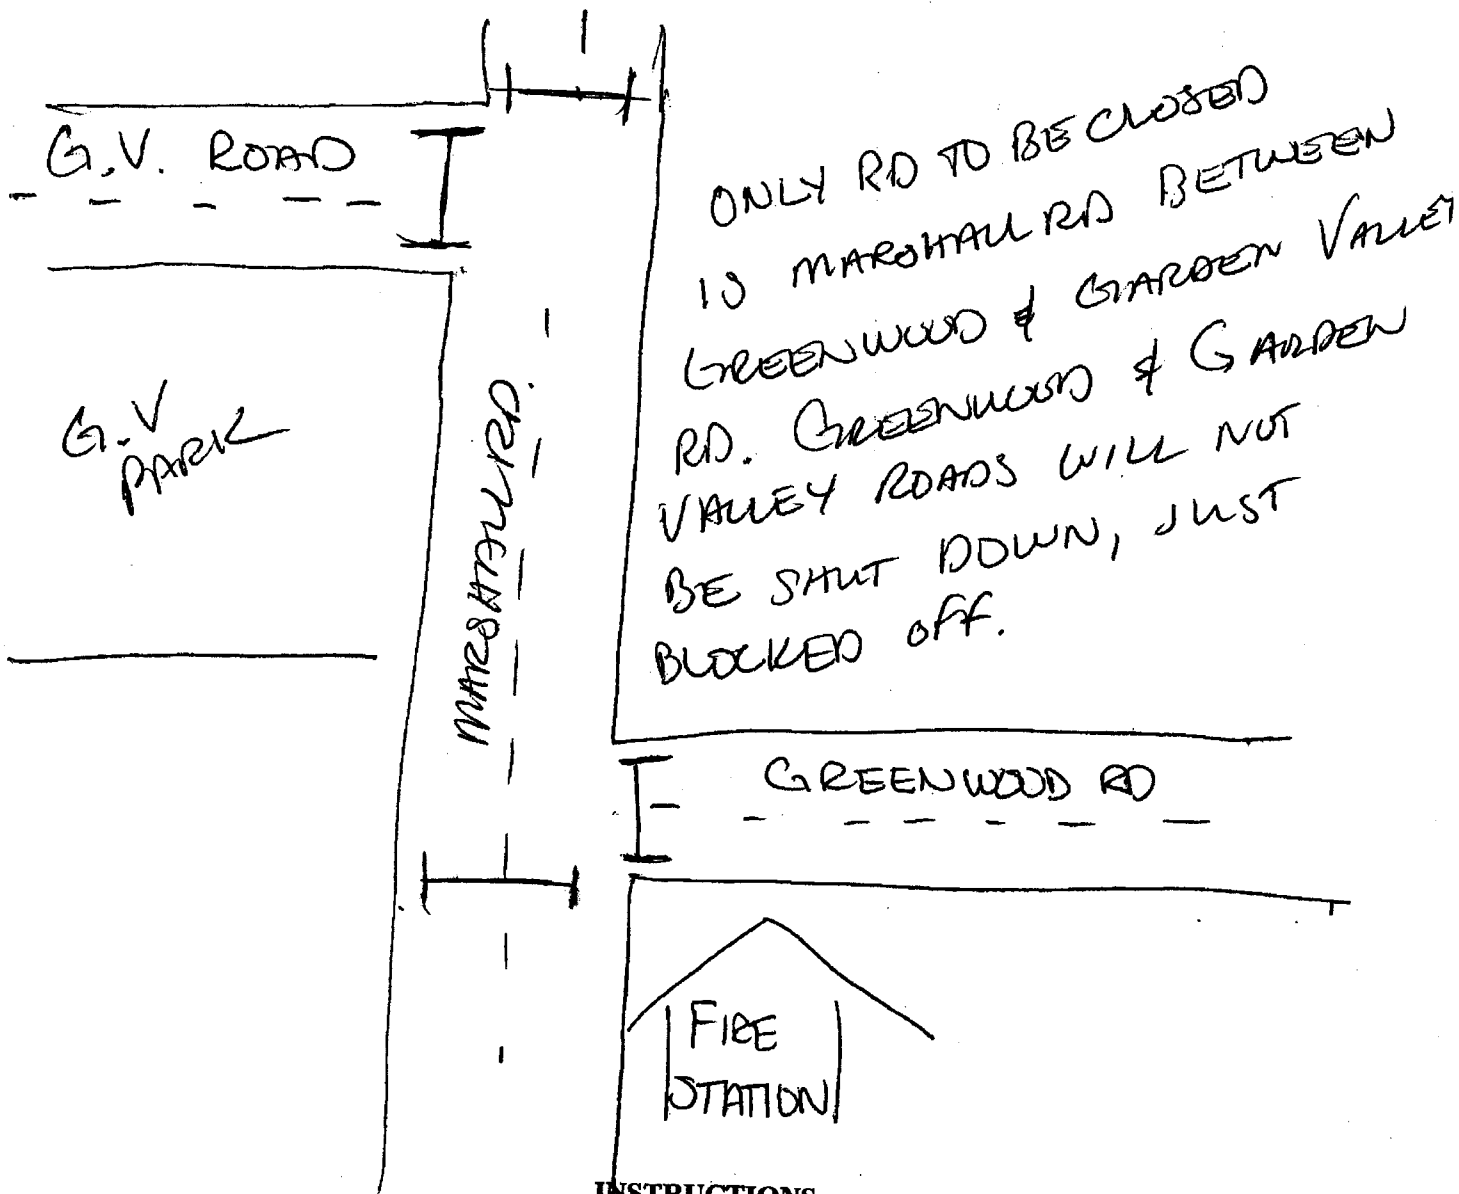 G.V. ROAD
ONLY RD TO BE CLOSED
IS MARSHALL RD BETWEEN
GREENWOOD & GARDEN VALLEY
RD. GREENWOOD & GARDEN
VALLEY ROADS WILL NOT
BE SHUT DOWN, JUST
BLOCKED OFF.
G.V
PARK
MARSHALL RD.
GREENWOOD RD
FIRE
STATION
INSTRUCTIONS